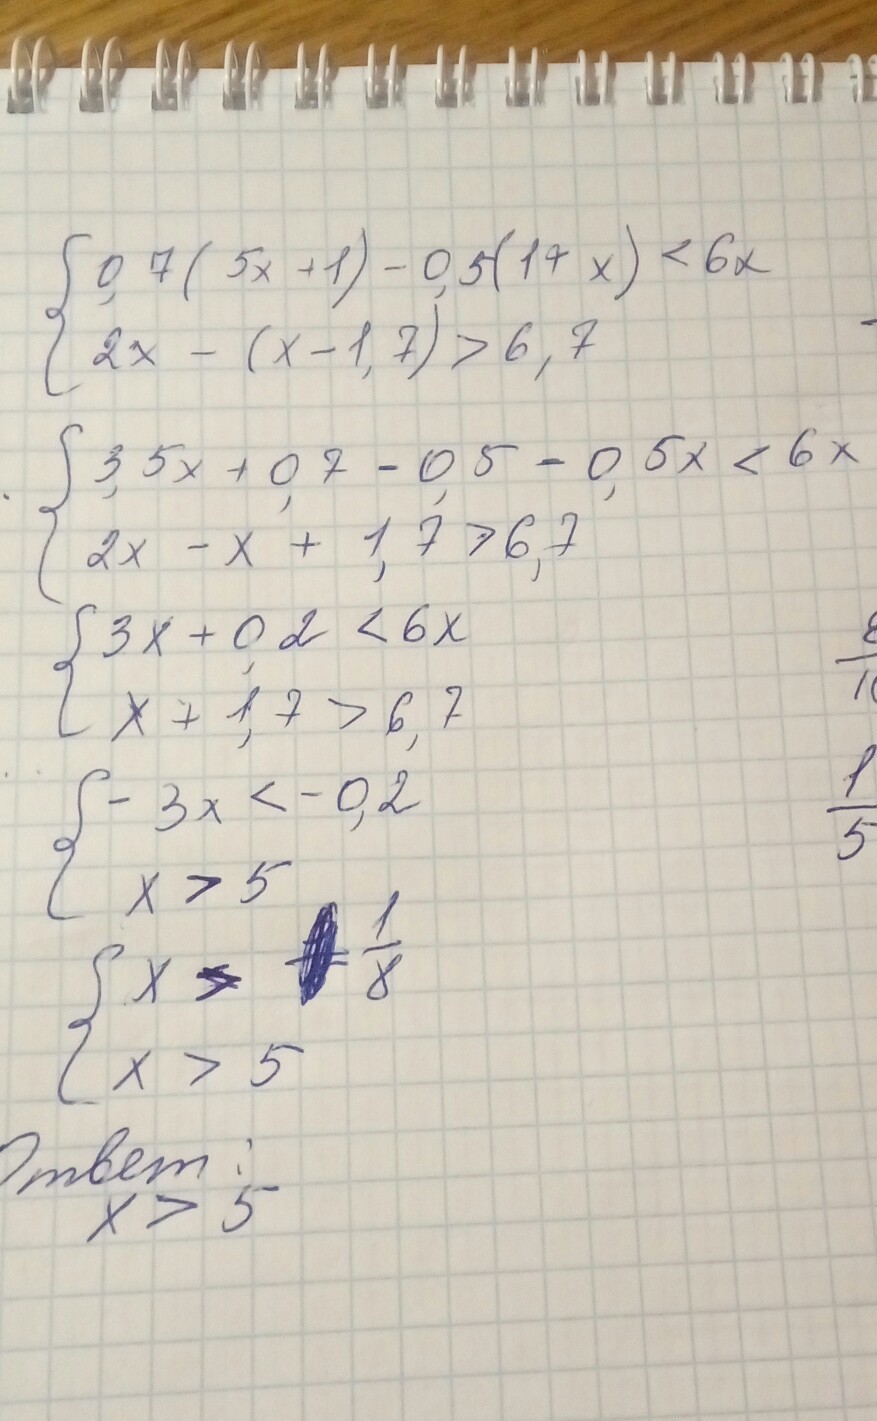 { 0,7(5x+1)-0,5(1+x)<6x
2x-(x-1,7)>6,7
{ 3,5x+0,7-0,5-0,5x<6x
2x-x+1,7>6,7
{ 3x+0,2<6x
x+1,7>6,7
{ -3x<-0,2
x>5
{ x> 1/8
x>5
Ответ:
x>5
1/5